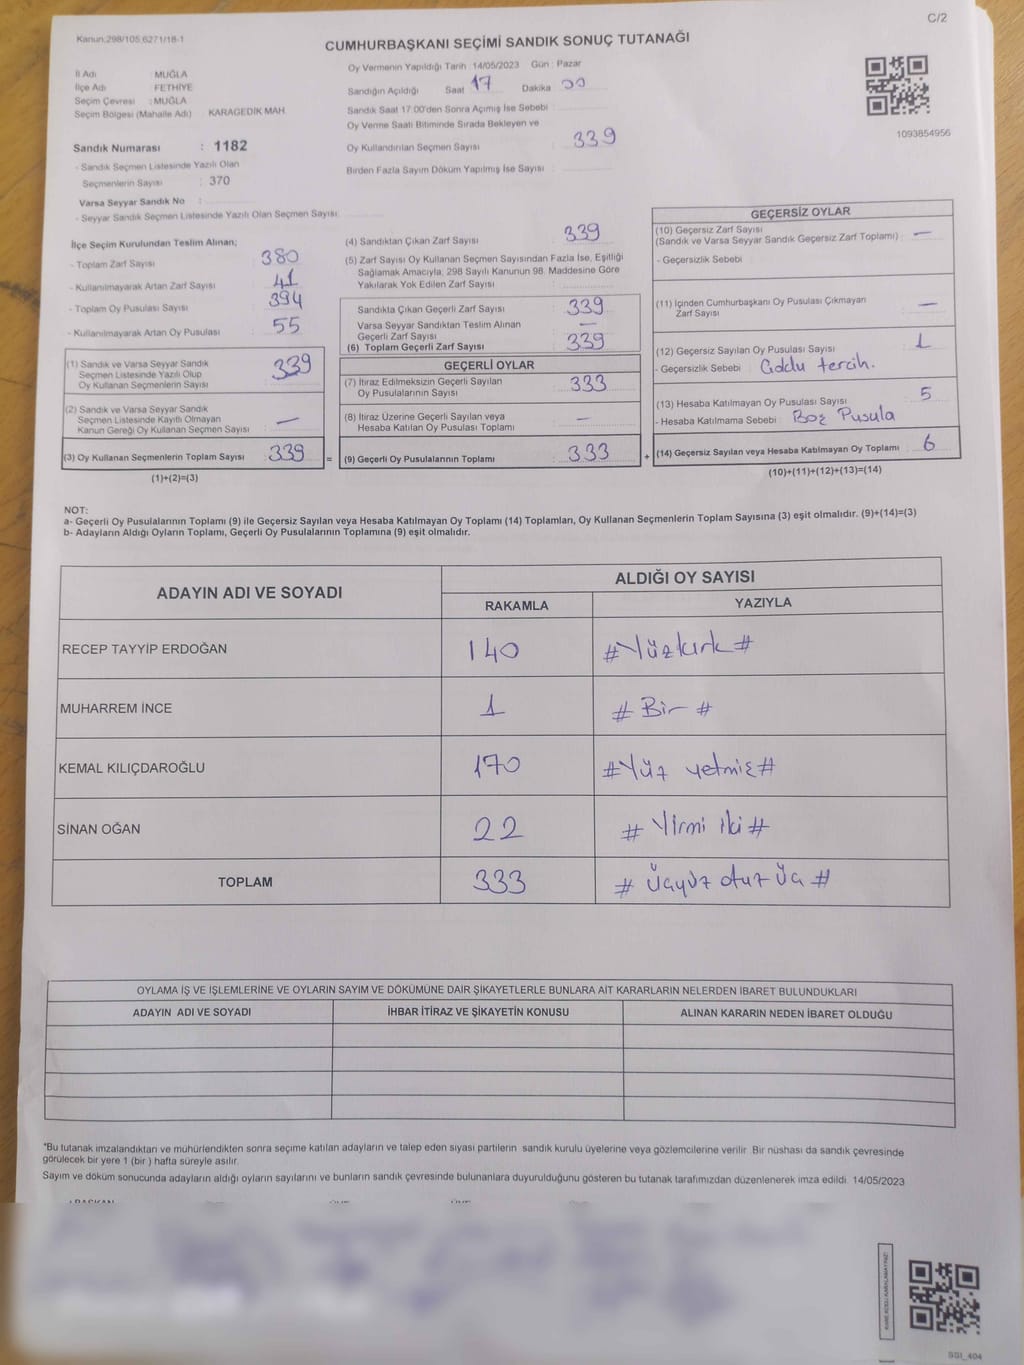 C/2
Kanun:298/105,6271/18-1
CUMHURBAŞKANI SEÇİMİ SANDIK SONUÇ TUTANAĞI
İl Adı : MUĞLA
İlçe Adı : FETHİYE
Seçim Çevresi : MUĞLA
Seçim Bölgesi (Mahalle Adı) KARAGEDİK MAH.
Sandık Numarası : 1182
- Sandık Seçmen Listesinde Yazılı Olan
Seçmenlerin Sayısı : 370
Varsa Seyyar Sandık No :
- Seyyar Sandık Seçmen Listesinde Yazılı Olan Seçmen Sayısı:
Oy Vermenin Yapıldığı Tarih : 14/05/2023 Gün : Pazar
Sandığın Açıldığı Saat 17 Dakika 00
Sandık Saat 17:00'den Sonra Açımış İse Sebebi :
Oy Verme Saati Bitiminde Sırada Bekleyen ve
Oy Kullandırılan Seçmen Sayısı : 339
Birden Fazla Sayım Döküm Yapılmış İse Sayısı :
1093854956
İlçe Seçim Kurulundan Teslim Alınan;
- Toplam Zarf Sayısı : 380
- Kullanılmayarak Artan Zarf Sayısı : 41
- Toplam Oy Pusulası Sayısı : 394
- Kullanılmayarak Artan Oy Pusulası : 55
(1) Sandık ve Varsa Seyyar Sandık
Seçmen Listesinde Yazılı Olup
Oy Kullanan Seçmenlerin Sayısı : 339
(2) Sandık ve Varsa Seyyar Sandık
Seçmen Listesinde Kayıtlı Olmayan
Kanun Gereği Oy Kullanan Seçmen Sayısı : —
(3) Oy Kullanan Seçmenlerin Toplam Sayısı : 339 =
(1)+(2)=(3)
(4) Sandıktan Çıkan Zarf Sayısı : 339
(5) Zarf Sayısı Oy Kullanan Seçmen Sayısından Fazla İse, Eşitliği
Sağlamak Amacıyla; 298 Sayılı Kanunun 98. Maddesine Göre
Yakılarak Yok Edilen Zarf Sayısı :
Sandıkta Çıkan Geçerli Zarf Sayısı : 339
Varsa Seyyar Sandıktan Teslim Alınan
Geçerli Zarf Sayısı : —
(6) Toplam Geçerli Zarf Sayısı : 339
GEÇERLİ OYLAR
(7) İtiraz Edilmeksizin Geçerli Sayılan
Oy Pusulalarının Sayısı : 333
(8) İtiraz Üzerine Geçerli Sayılan veya
Hesaba Katılan Oy Pusulası Toplamı : —
(9) Geçerli Oy Pusulalarının Toplamı : 333 +
GEÇERSİZ OYLAR
(10) Geçersiz Zarf Sayısı
(Sandık ve Varsa Seyyar Sandık Geçersiz Zarf Toplamı) : —
- Geçersizlik Sebebi :
(11) İçinden Cumhurbaşkanı Oy Pusulası Çıkmayan
Zarf Sayısı : —
(12) Geçersiz Sayılan Oy Pusulası Sayısı : 1
- Geçersizlik Sebebi : Çoddu tercih.
(13) Hesaba Katılmayan Oy Pusulası Sayısı : 5
- Hesaba Katılmama Sebebi : Boş Pusula
(14) Geçersiz Sayılan veya Hesaba Katılmayan Oy Toplamı : 6
(10)+(11)+(12)+(13)=(14)
NOT:
a- Geçerli Oy Pusulalarının Toplamı (9) ile Geçersiz Sayılan veya Hesaba Katılmayan Oy Toplamı (14) Toplamları, Oy Kullanan Seçmenlerin Toplam Sayısına (3) eşit olmalıdır. (9)+(14)=(3)
b- Adayların Aldığı Oyların Toplamı, Geçerli Oy Pusulalarının Toplamına (9) eşit olmalıdır.
ADAYIN ADI VE SOYADI ALDIĞI OY SAYISI
RAKAMLA YAZIYLA
RECEP TAYYİP ERDOĞAN 140 #Yüzkırk#
MUHARREM İNCE 1 #Bir#
KEMAL KILIÇDAROĞLU 170 #Yüz yetmiş#
SİNAN OĞAN 22 #Yirmi iki#
TOPLAM 333 #Üçyüz otuz üç#
OYLAMA İŞ VE İŞLEMLERİNE VE OYLARIN SAYIM VE DÖKÜMÜNE DAİR ŞİKAYETLERLE BUNLARA AİT KARARLARIN NELERDEN İBARET BULUNDUKLARI
ADAYIN ADI VE SOYADI İHBAR İTİRAZ VE ŞİKAYETİN KONUSU ALINAN KARARIN NEDEN İBARET OLDUĞU
*Bu tutanak imzalandıktan ve mühürlendikten sonra seçime katılan adayların ve talep eden siyasi partilerin sandık kurulu üyelerine veya gözlemcilerine verilir. Bir nüshası da sandık çevresinde
görülecek bir yere 1 (bir ) hafta süreyle asılır.
Sayım ve döküm sonucunda adayların aldığı oyların sayılarını ve bunların sandık çevresinde bulunanlara duyurulduğunu gösteren bu tutanak tarafımızdan düzenlenerek imza edildi. 14/05/2023
KARE KODU KARALAMAYINIZ!
SSI_404